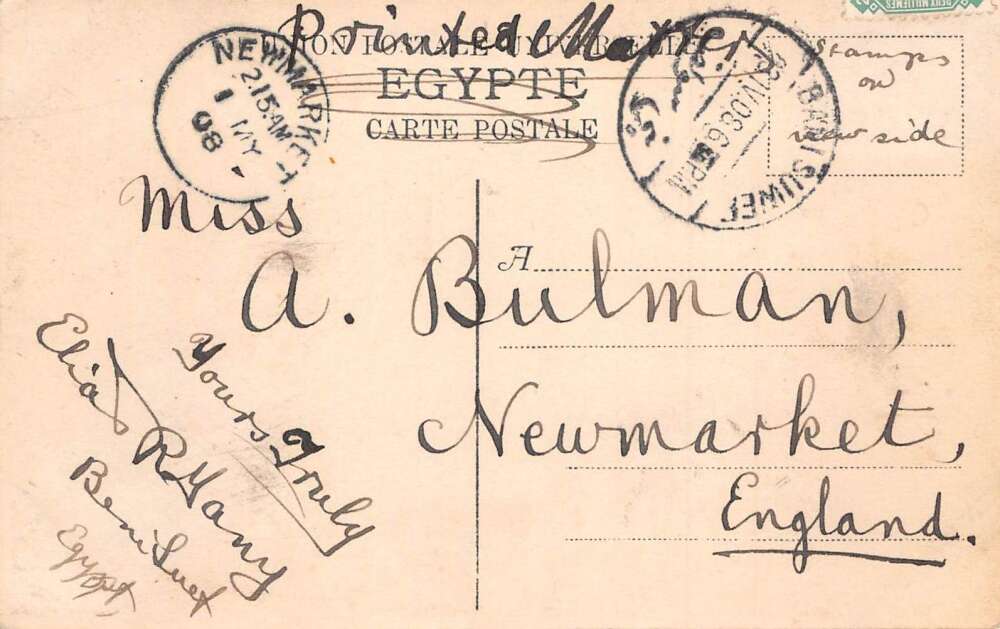 Printed Matter
UNION POSTALE UNIVERSELLE
EGYPTE
CARTE POSTALE
DEUX MILLIEMES
NEWMARKET
2.15AM
1 MY
08
BENI SUWEF
بنى سويف
Stamps
on
view side
Miss
A
A. Bulman,
Newmarket,
England.
Yours Truly
Elias
Beni Suef
Egypt,